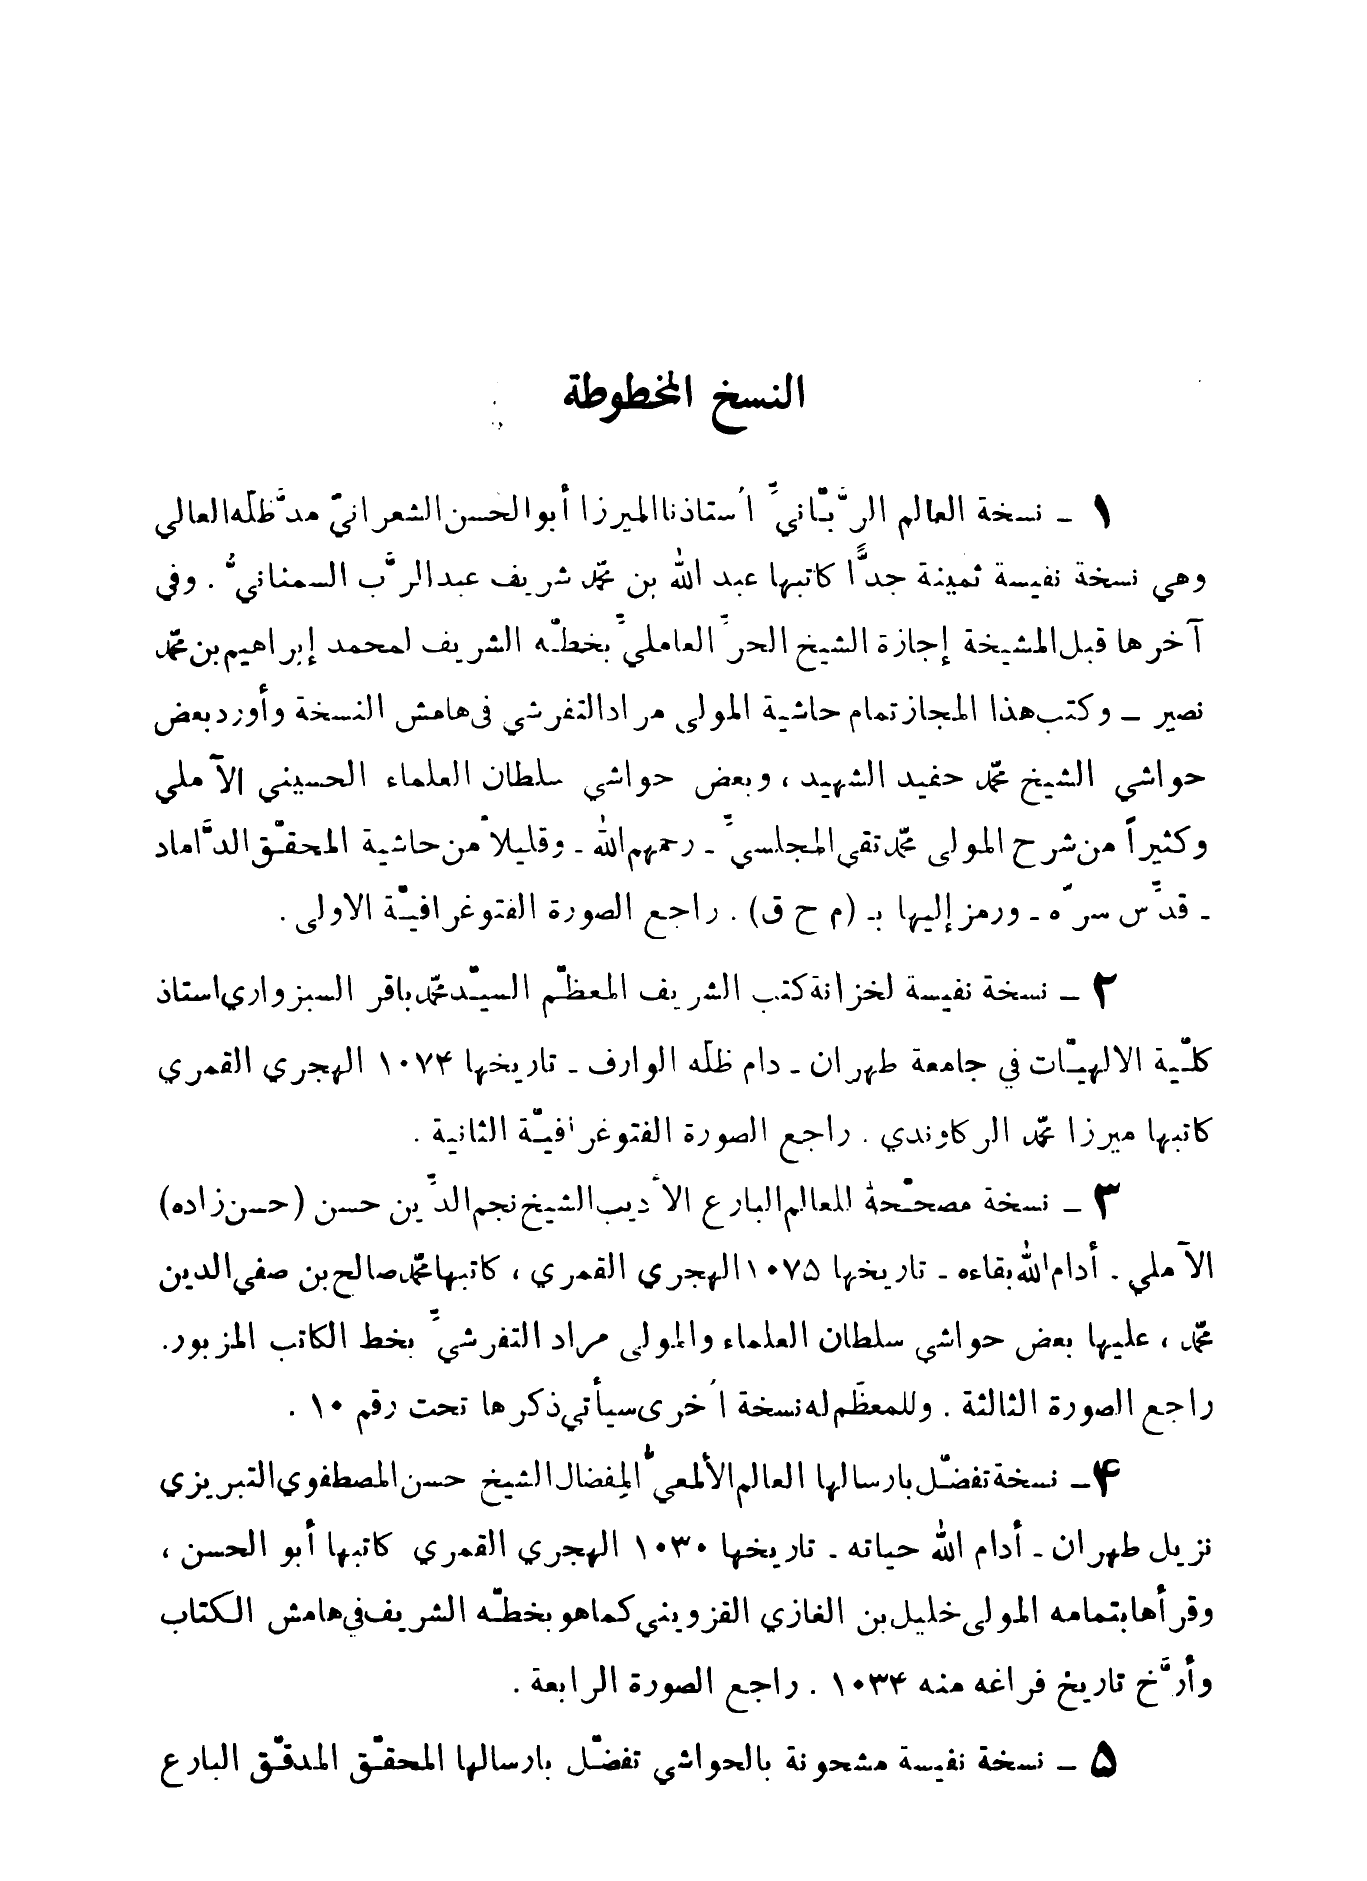 النسخ المخطوطة
١ ـ نسخة العالم الرَّبّانيِّ اُستاذنا الميرزا أبو الحسن الشعرانيّ مدَّ ظلّه العالي
وهي نسخة نفيسة ثمينة جدًّا كاتبها عبد الله بن محمّد شريف عبد الرَّب السمنانيُّ . وفي
آخرها قبل المشيخة إجازة الشيخ الحرِّ العامليِّ بخطّه الشريف لمحمد إبراهيم بن محمّد
نصير ــ وكتب هذا المجاز تمام حاشية المولى مراد التفرشي في هامش النسخة وأورد بعض
حواشي الشيخ محمّد حفيد الشهيد ، وبعض حواشي سلطان العلماء الحسيني الآملي
وكثيراً من شرح المولى محمّد تقي المجلسيِّ ـ رحمهم الله ـ وقليلاً من حاشية المحقّق الدَّاماد
ـ قدِّس سرّه ـ ورمز إليها بـ (م ح ق) . راجع الصورة الفتوغرافيّة الاولى .
٢ ــ نسخة نفيسة لخزانة كتب الشريف المعظّم السيّد محمّد باقر السبزواري استاذ
كلّية الالهيّات في جامعة طهران ـ دام ظلّه الوارف ـ تاريخها ١٠٧۴ الهجري القمري
كاتبها ميرزا محمّد الركاوندي . راجع الصورة الفتوغرافيّة الثانية .
٣ ــ نسخة مصحّحة للعالم البارع الأديب الشيخ نجم الدِّين حسن (حسن زاده)
الآملي . أدام الله بقاءه ـ تاريخها ١٠٧۵ الهجري القمري ، كاتبها محمّد صالح بن صفي الدين
محمّد ، عليها بعض حواشي سلطان العلماء والمولى مراد التفرشيِّ بخط الكاتب المزبور.
راجع الصورة الثالثة . وللمعظّم له نسخة اُخرى سيأتي ذكرها تحت رقم ١٠ .
۴ــ نسخة تفضّل بارسالها العالم الألمعيُّ المِفضال الشيخ حسن المصطفوي التبريزي
نزيل طهران ـ أدام الله حياته ـ تاريخها ١٠٣٠ الهجري القمري كاتبها أبو الحسن ،
وقرأها بتمامه المولى خليل بن الغازي القزويني كما هو بخطّه الشريف في هامش الكتاب
وأرَّخ تاريخ فراغه منه ١٠٣۴ . راجع الصورة الرابعة .
۵ ــ نسخة نفيسة مشحونة بالحواشي تفضّل بارسالها المحقّق المدقّق البارع